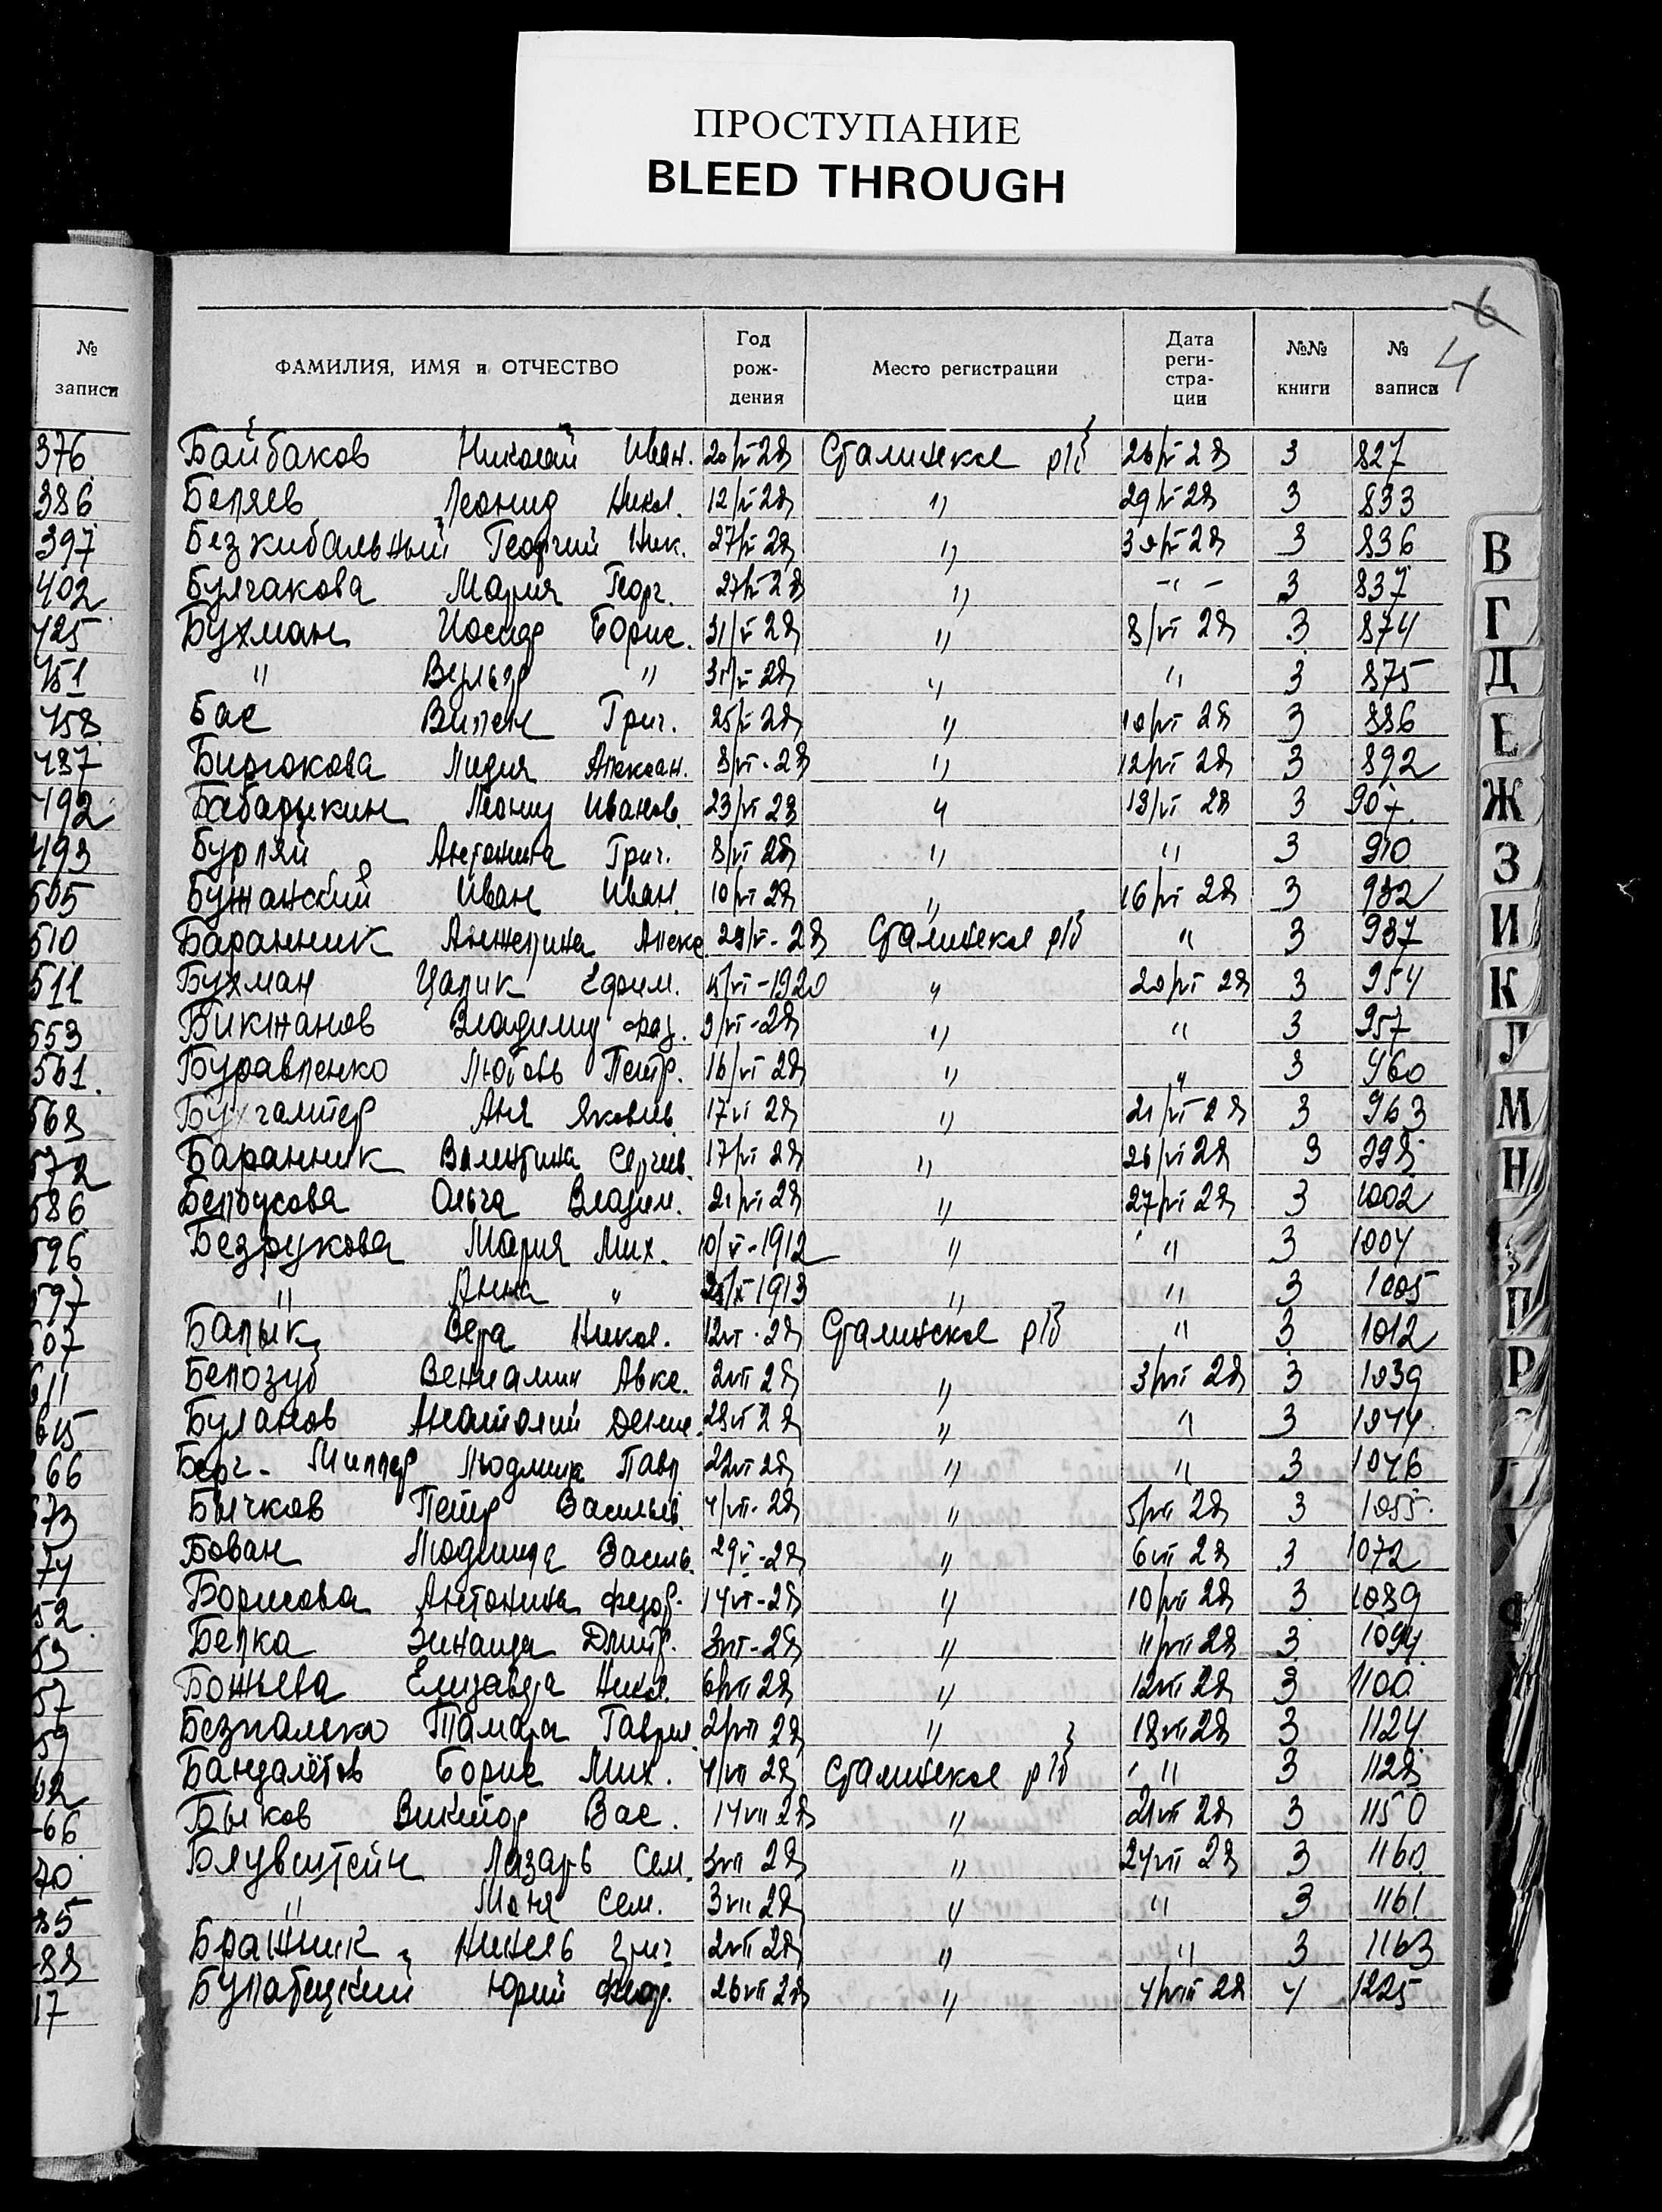 ПРОСТУПАНИЕ
BLEED THROUGH
6
4
№ записи
ФАМИЛИЯ, ИМЯ и ОТЧЕСТВО Год рождения Место регистрации Дата реги-стра-ции №№ книги № записи
376 Байбаков Николай Иван. 20/V-28 Сталинское р/б 28/V-28 3 827
386 Беляев Леонид Никол. 12/V-28 " 29/V-28 3 833
397 Безкибальный Георгий Ник. 27/V-28 " 30/V-28 3 836
402 Булгакова Мария Георг. 27/V-28 " -"- 3 837
425 Бухман Иосиф Борис. 31/V 28 " 8/VI 28 3 874
451 " " 31/V-28 " " 3 875
458 Бас Вилен Григ. 25/V-28 " 10/VI 28 3 886
487 Бирюкова Лидия Алексан. 8/VI-28 " 12/VI 28 3 892
492 Бабарыкин Леонид Иванов. 23/VI 28 " 13/VI 28 3 907
493 Бурляй Антонина Григ. 8/VI 28 " " 3 910
505 Бужанский Иван Иван. 10/VI 28 " 16/VI 28 3 932
510 Баранник Анжелина Алекс. 29/V-28 Сталинское р/б " 3 937
511 Бухман Цалик Ефим. 15/VI-1920 " 20/VI 28 3 954
553 Бикжанов Владимир Фаз. 9/VI-28 " " 3 957
561. Буравленко Любовь Петр. 16/VI 28 " " 3 960
568 Бухгалтер Аня Яковлев. 17VI 28 " 21/VI-28 3 963
572 Баранник Валентина Сергеев. 17/VI 28 " 26/VI 28 3 998
586 Белоусова Ольга Владим. 21/VI 28 " 27/VI 28 3 1002
596 Безрукова Мария Мих. 10/V-1912 " " 3 1004
597 " Анна " 1913 " " 3 1005
607 Балык Вера Никол. 12VI-28 Сталинское р/б " 3 1012
611 Белозуб Вениамин Авкс. 2VII 28 " 3/VII 28 3 1039
615 Буланов Анатолий Денис. 28VI 28 " " 3 1044
666 Берг-Миллер Людмила Павл 22VI 28 " " 3 1046
673 Бычков Петр Васильев. 4/VII-28 " 5/VII 28 3 1055
74 Бован Людмила Василь. 29V-28 " 6VII 28 3 1072
52 Борисова Антонина Федор. 14VI-28 " 10/VII 28 3 1089
53 Белка Зинаида Дмитр. 3VII-28 " 11/VII 28 3 1094
57 Божьева Елизавета Никол. 6/VII 28 " 12VII 28 3 1100
59 Безпалько Тамара Гаврил. 2/VII 28 " 18VII 28 3 1124
62 Бандалётов Борис Мих. 4/VII 28 Сталинское р/б " 3 1128
66 Быков Виктор Вас. 14VII 28 " 21VII 28 3 1150
70 Блувштейн Лазарь Сем. 3VII 28 " 24VII 28 3 1160
85 " Моня Сем. 3VII 28 " " 3 1161
88 Бражник Нинель Григ 2VII 28 " " 3 1163
17 Булавицкий Юрий Федор. 26VII 28 " 4/VIII 28 4 1225
В
Г
Д
Е
Ж
З
И
К
Л
М
Н
П
Р